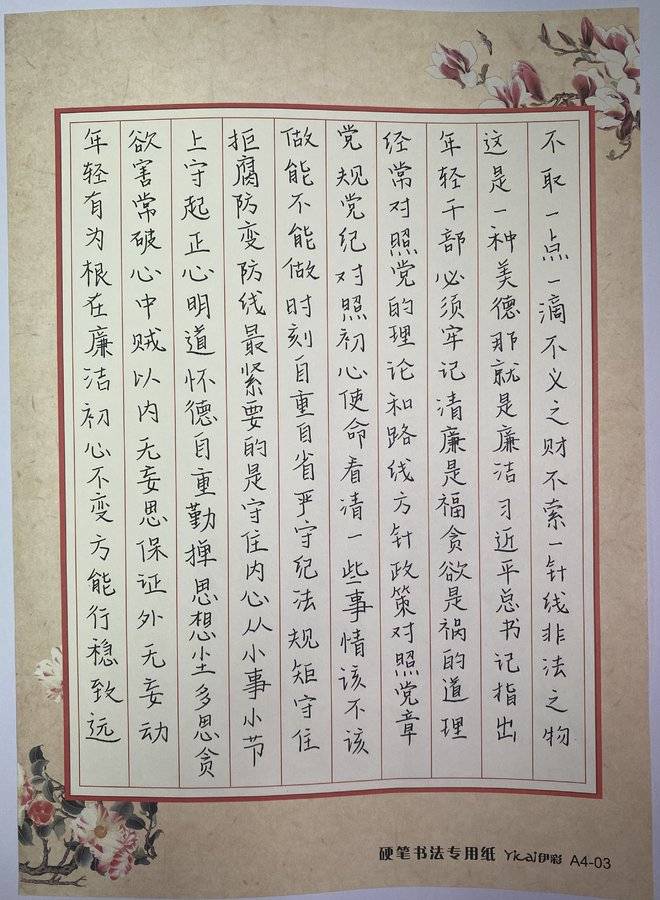 不取一点一滴不义之财不索一针线非法之物
这是一种美德那就是廉洁习近平总书记指出
年轻干部必须牢记清廉是福贪欲是祸的道理
经常对照党的理论和路线方针政策对照党章
党规党纪对照初心使命看清一些事情该不该
做能不能做时刻自重自省严守纪法规矩守住
拒腐防变防线最紧要的是守住内心从小事小节
上守起正心明道怀德自重勤掸思想尘多思贪
欲害常破心中贼以内无妄思保证外无妄动
年轻有为根在廉洁初心不变方能行稳致远
硬笔书法专用纸 Yicai伊彩 A4-03